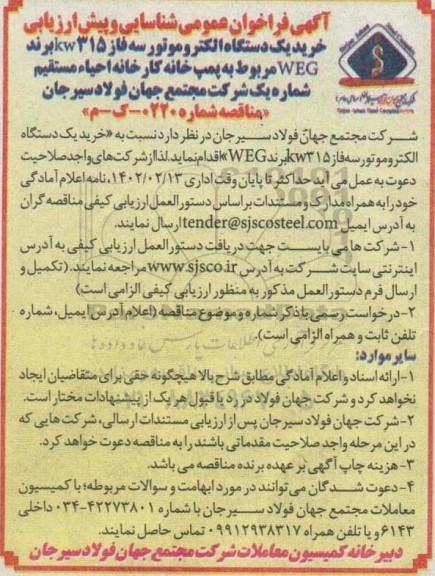 آگهی فراخوان عمومی شناسایی و پیش ارزیابی
خرید یک دستگاه الکتروموتور سه فاز kw۳۱۵ برند
WEG مربوط به پمپ خانه کارخانه احیاء مستقیم
شماره یک شرکت مجتمع جهان فولاد سیرجان
«مناقصه شماره ۰۲۲۰-ک-م»
شرکت مجتمع جهان فولاد سیرجان در نظر دارد نسبت به «خرید یک دستگاه
الکتروموتور سه فاز kw۳۱۵ برند WEG» اقدام نماید. لذا از شرکت های واجد صلاحیت
دعوت به عمل می آید حداکثر تا پایان وقت اداری ۱۴۰۲/۰۲/۱۳، نامه اعلام آمادگی
خود را به همراه مدارک و مستندات بر اساس دستورالعمل ارزیابی کیفی مناقصه گران
به آدرس ایمیل tender@sjscosteel.com ارسال نمایند.
۱-شرکت ها می بایست جهت دریافت دستورالعمل ارزیابی کیفی به آدرس
اینترنتی سایت شرکت به آدرس www.sjsco.ir مراجعه نمایند. (تکمیل و
ارسال فرم دستورالعمل مذکور به منظور ارزیابی کیفی الزامی است)
۲-درخواست رسمی با ذکر شماره و موضوع مناقصه (اعلام آدرس ایمیل، شماره
تلفن ثابت و همراه الزامی است).
سایر موارد:
۱-ارائه اسناد و اعلام آمادگی مطابق شرح بالا هیچگونه حقی برای متقاضیان ایجاد
نخواهد کرد و شرکت جهان فولاد در رد یا قبول هر یک از پیشنهادات مختار است.
۲-شرکت جهان فولاد سیرجان پس از ارزیابی مستندات ارسالی، شرکت هایی که
در این مرحله واجد صلاحیت مقدماتی باشند را به مناقصه دعوت خواهد کرد.
۳-هزینه چاپ آگهی بر عهده برنده مناقصه می باشد.
۴-دعوت شدگان می توانند در مورد ابهامات و سوالات مربوطه؛ با کمیسیون
معاملات مجتمع جهان فولاد سیرجان با شماره ۴۲۲۷۳۸۰۱-۰۳۴ داخلی
۶۱۴۳ و یا تلفن همراه ۰۹۹۱۲۹۳۸۳۱۷ تماس حاصل نمایند.
دبیرخانه کمیسیون معاملات شرکت مجتمع جهان فولاد سیرجان